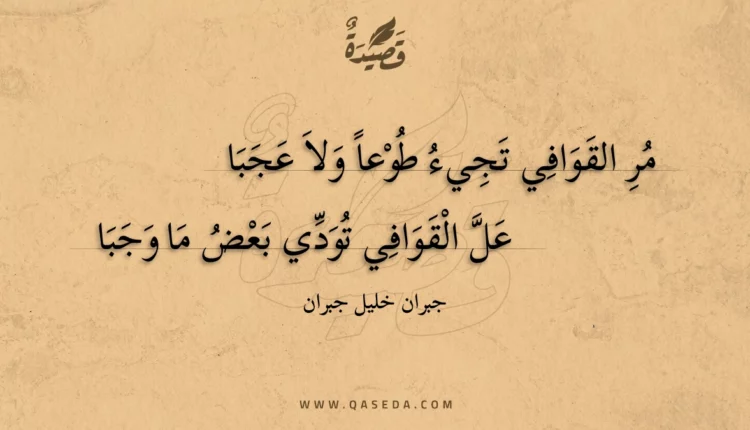 قَصِيْدَةٌ
مُرِ القَوَافِي تَجِيءُ طُوْعاً وَلاَ عَجَبَا
عَلَّ الْقَوَافِي تُوَدِّي بَعْضُ مَا وَجَبَا
جبران خليل جبران
WWW.QASEDA.COM